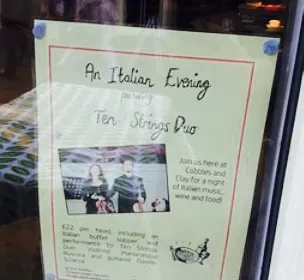 An Italian Evening
featuring
Ten Strings Duo
Join us here at
Cobbles and
Clay for a night
of Italian music,
wine and food!
£22 per head, including an
Italian buffet supper and
performance by Ten Strings
Duo: Violinist
and guitarist Davide
Sciacca